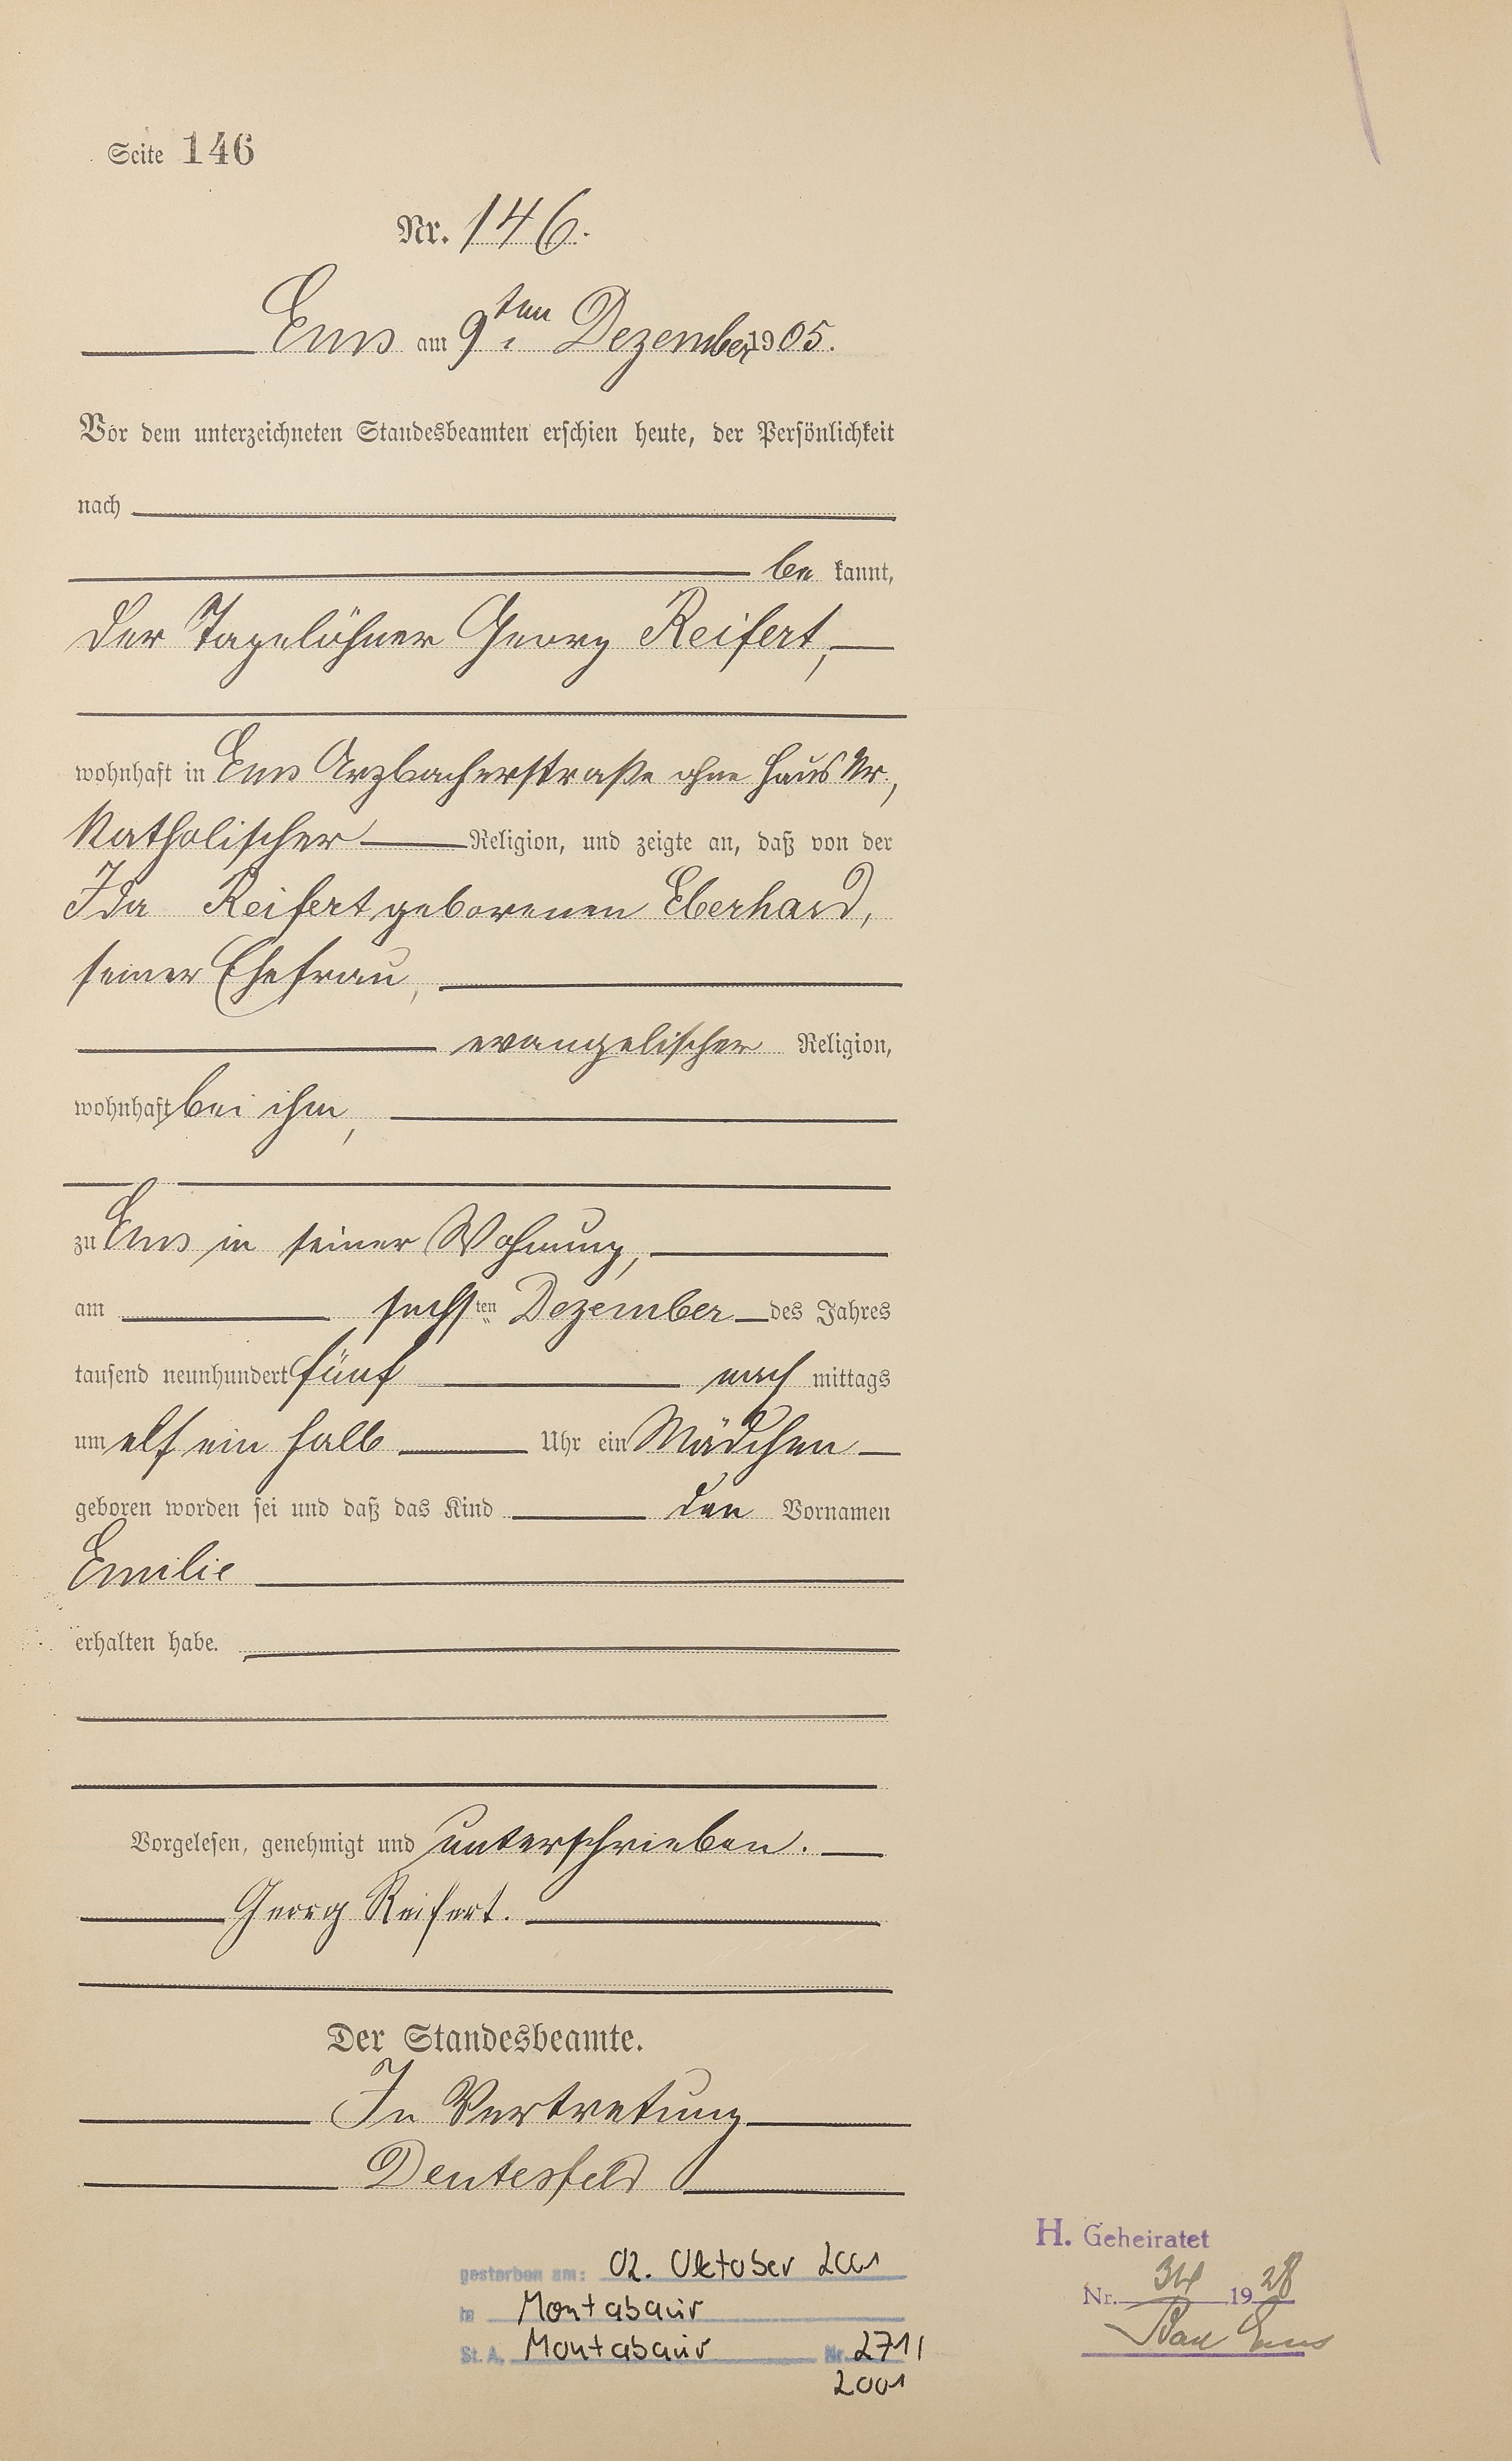 Seite 146
Nr. 146.
Ems am 9ten Dezember 1905.
Vor dem unterzeichneten Standesbeamten erschien heute, der Persönlichkeit
nach
be kannt,
der Tagelöhner Georg Reifert,
wohnhaft in Ems Arzbacherstraße ohne Haus Nr.,
katholischer Religion, und zeigte an, daß von der
Ida Reifert geborenen Eberhard,
seiner Ehefrau,
evangelischer Religion,
wohnhaft bei ihm,
zu Ems in seiner Wohnung,
am sechsten Dezember des Jahres
tausend neunhundert fünf nach mittags
um elf ein halb Uhr ein Mädchen
geboren worden sei und daß das Kind den Vornamen
Emilie
erhalten habe.
Vorgelesen, genehmigt und unterschrieben.
Georg Reifert.
Der Standesbeamte.
In Vertretung
Deutesfeld
H. Geheiratet
Nr. 34 1928
Bad Ems
gestorben am: 02. Oktober 2001
in Montabaur
St. A. Montabaur Nr. 271/
2001